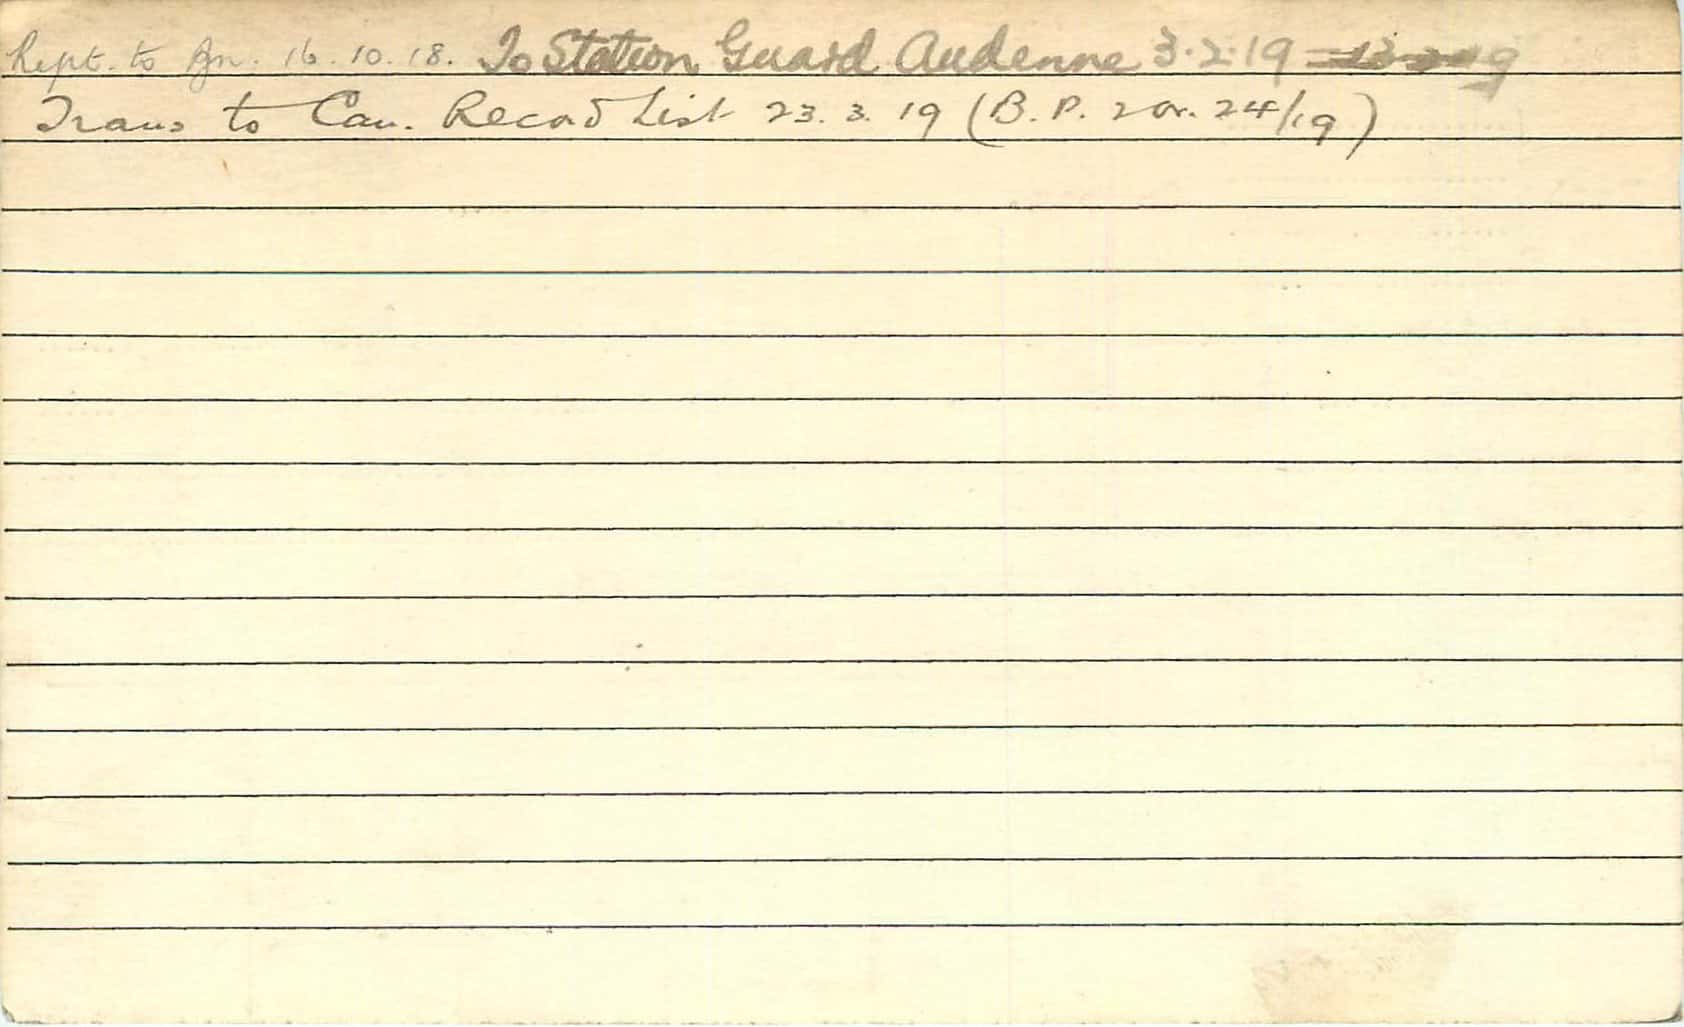 Rept. to Bn. 16.10.18. To Station Guard Audenne 3.2.19
Trans to Can. Record List 23.3.19 (B.P. 2 or. 24/19)